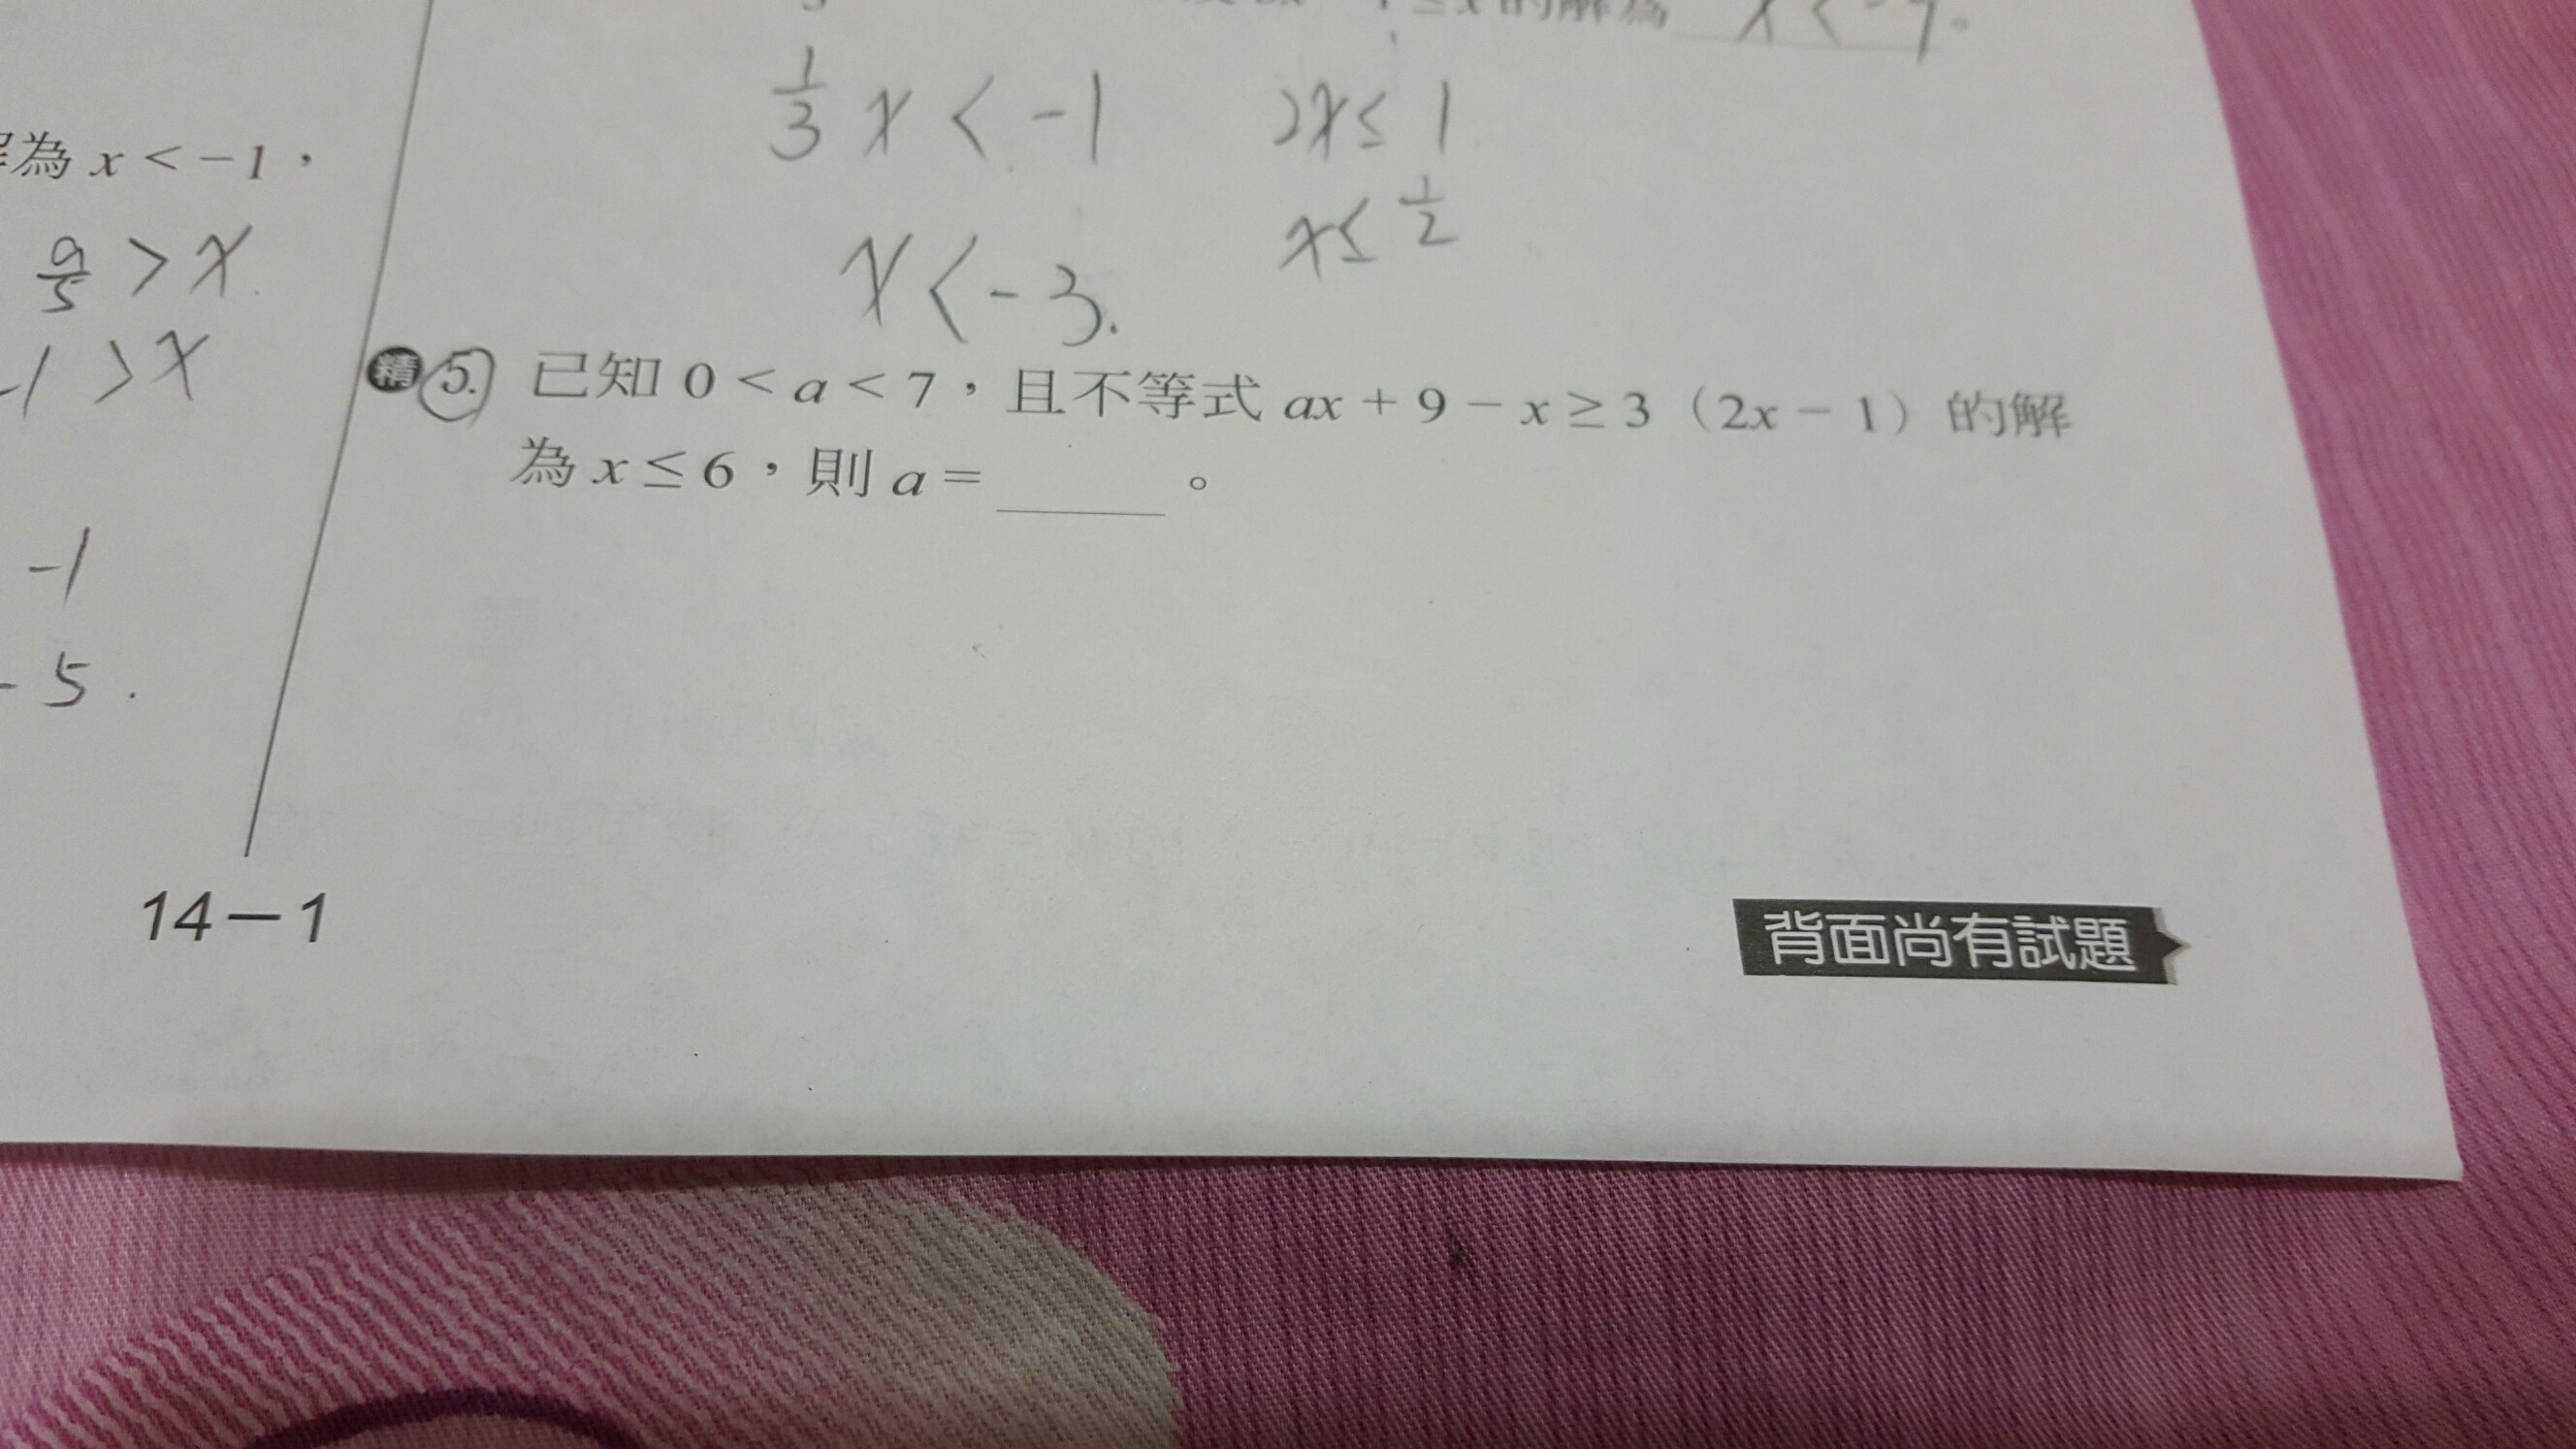 的解為 x < -
1/3 x < -1
2x ≤ 1
x ≤ 1/2
x < -3.
為 x < -1，
> x
-1 > x
-1
-5.
精 5. 已知 0 < a < 7，且不等式 ax + 9 - x ≥ 3（2x - 1）的解
為 x ≤ 6，則 a = ______。
14-1
背面尚有試題